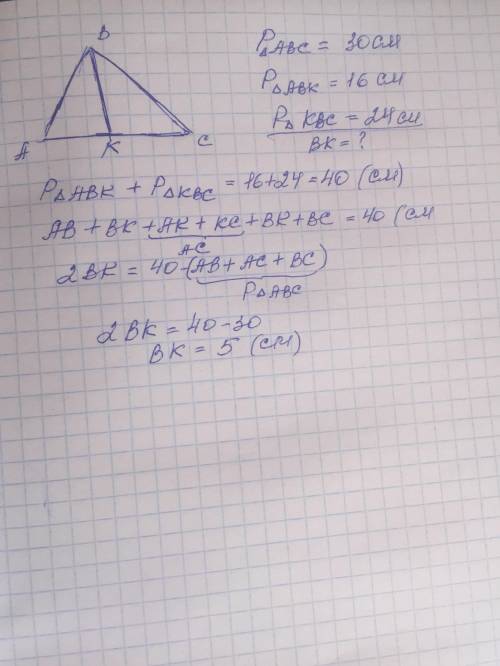 B
A K C
P△ABC = 30 см
P△ABK = 16 см
P△KBC = 24 см
BK = ?
P△ABK + P△KBC = 16+24 = 40 (см)
AB + BK + AK + KC + BK + BC = 40 (см
AC
2BK = 40-(AB+AC+BC)
P△ABC
2BK = 40-30
BK = 5 (см)